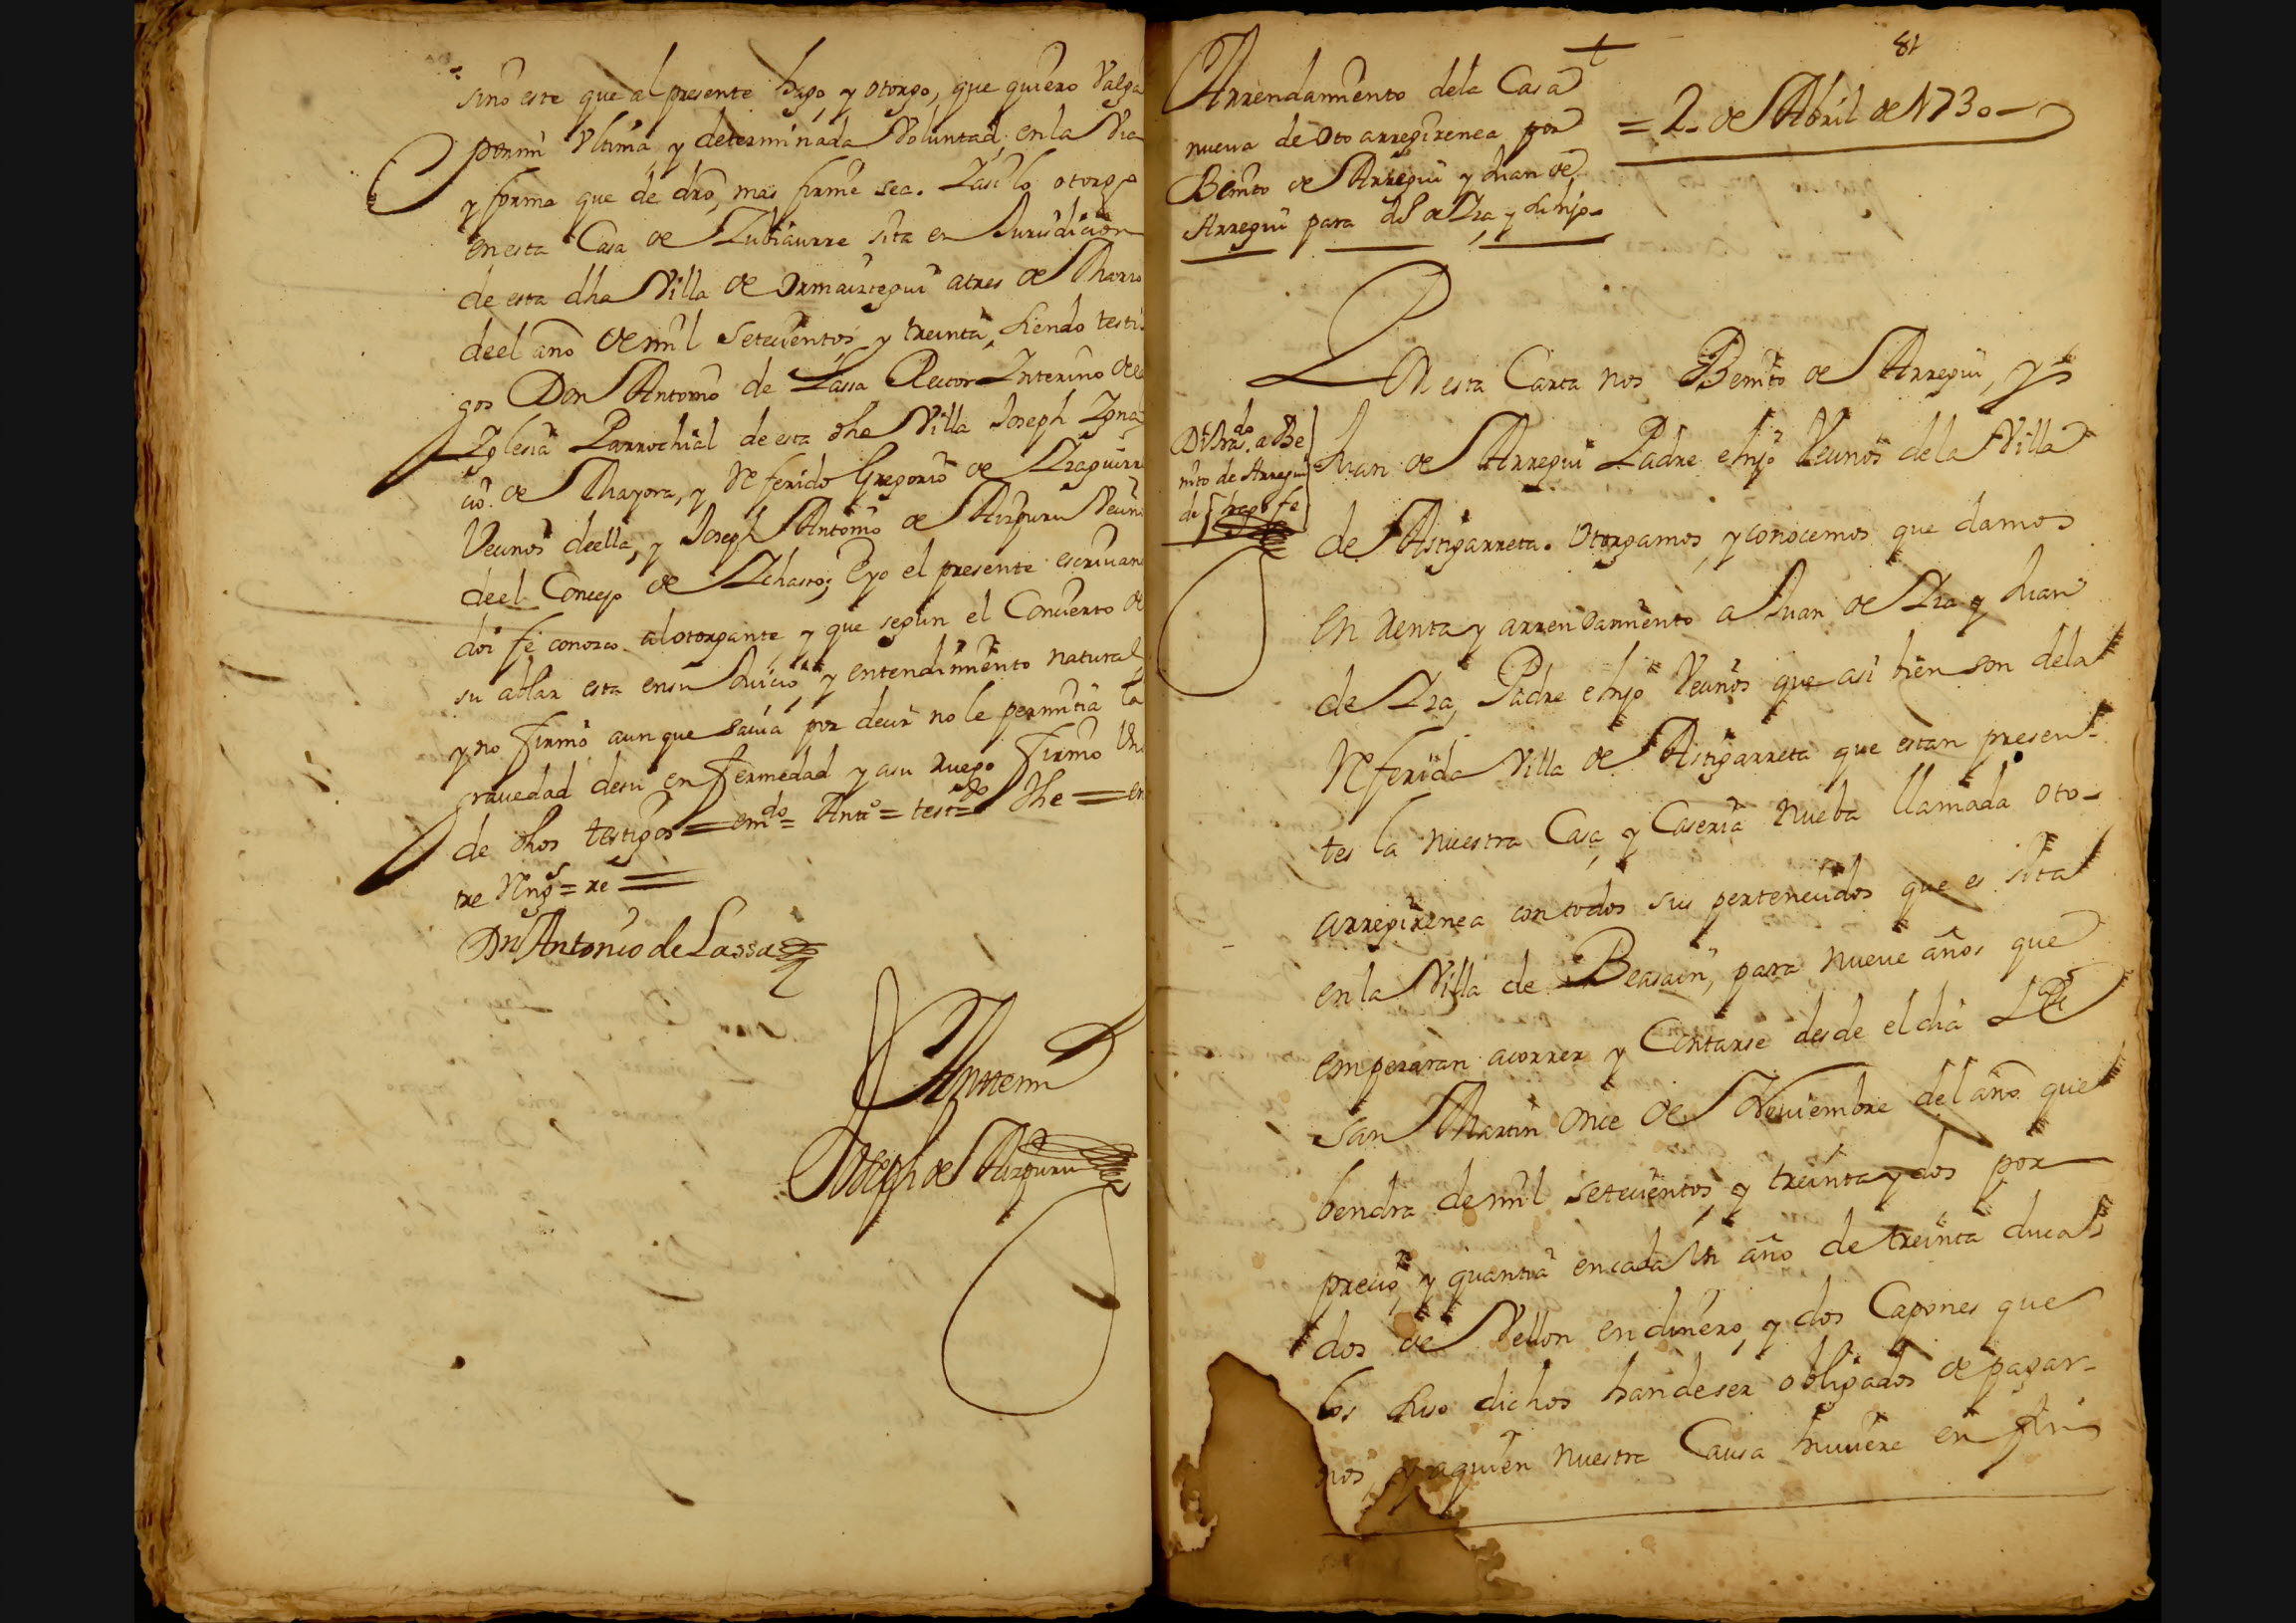 sino este que al presente hago y otorgo, que quiero Valga
por mi Vltima, y determinada Voluntad, en la Via
y forma que de dro, mas firme sea. Y asi lo otorgo
en esta Casa de Zubiaurre sita en Jurisdicion
de esta dha Villa de Ormaiztegui a tres de Marzo
de el año de mil Setecientos y treinta, siendo testi-
gos Don Antonio de Lassa Rector Interino de la
Iglesia Parrochial de esta dha Villa Joseph Igna-
cio de Mayora, y Referido Gregorio de Yzaguirre
Vecinos de ella, y Joseph Antonio de Aizpuru Vecino
de el Concejo de Ichaso; Eyo el presente escriuano
doi fe conozco al otorgante, y que segun el Concierto de
su ablar esta en su Juicio, y entendimiento natural
y no firmó aunque sauia por decir no le permitia la
grauedad de su enfermedad y a su ruego firmó Vno
de dhos testigos = emdo = Anto = testdo dhe = en
tre Rngs = re =
Dn Antonio de Lassa
Antemi
Joseph de Aizpuru
81
Arrendamiento dela Casa
nueua de Otoarregirenea por
Benito de Arregui y Juan de
Arregui para Jn de Yza y su hijo
= 2 de Abril de 1730
En esta Carta nos Benito de Arregui, y
Juan de Arregui Padre e hijo Vecinos de la Villa
de Astigarreta. Otorgamos, y conocemos que damos
en renta y arrendamiento a Juan de Yza y Juan
de Yza, Padre e hijo Vecinos que asi bien son dela
Referida Villa de Astigarreta que estan presen-
tes la nuestra Casa, y Caseria Nueba llamada Oto-
arregirenea con todos sus pertenecidos que es sita
en la Villa de Beasain, para nueue años que
empezaran acorrer y Contarse desde el dia de
San Martin Once de Nouiembre del año que
bendra de mil setecientos, y treinta y dos por
precio, y quantia en cada Vn año de treinta duca-
dos de Vellon en dinero, y dos Capones que
los suso dichos han de ser obligados de pagar-
nos, y a quien nuestra Causa huuiere en fin